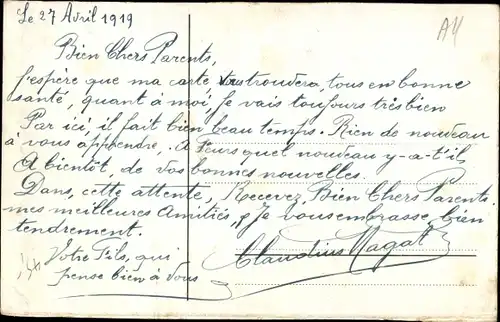 Le 27 Avril 1919
A4
Bien Chers Parents,
J'espère que ma carte vous trouvera, tous en bonne
santé, quant à moi, je vais toujours très bien
Par ici, il fait bien beau temps. Rien de nouveau
à vous apprendre. A quel nouveau y-a-t'il,
A bientôt, de vos bonnes nouvelles.
Dans, cette attente, Recevez, Bien Chers Parents
mes meilleures Amitiés, Je vous embrasse, bien
tendrement.
Votre Fils, qui
pense bien à vous
Claudius Magat